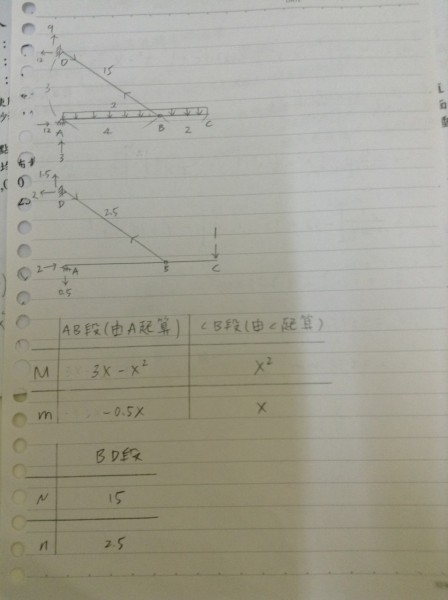 9
12
D
15
3
2
12
A
4
B
2
C
3
1.5
2
D
2.5
1
2
A
B
C
0.5
AB段(由A起算) CB段(由C起算)
M 3X-X² X²
m -0.5X X
BD段
N 15
n 2.5